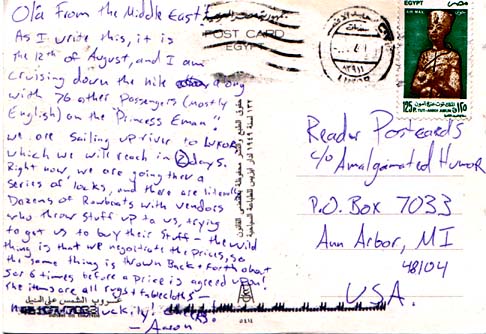 Ola From the Middle East!
As I write this, it is
the 12th of August, and I am
cruising down the nile along
with 76 other passengers (mostly
English) on the Princess Eman!
we are sailing up river to Luxor,
which we will reach in 2 days.
Right now, we are going thru a
series of locks, and there are literally
Dozens of Rowboats with vendors
who throw stuff up to us, trying
to get us to buy their stuff - the wild
thing is that we negotiate the prices, so
the same thing is thrown Back + forth about
5 or 6 times before a price is agreed upon!
The items are all rugs + tablecloths -
luckily!
- Aaron
POST CARD
EGYPT
EGYPT
مصر
AIR MAIL
125 P.
Reader Postcards
c/o Amalgamated Humor
P.O. Box 7033
Ann Arbor, MI
48104
USA.
غروب الشمس على النيل